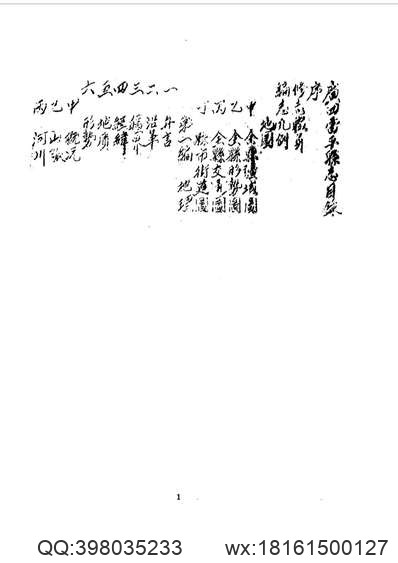 廣西雷平縣志目錄
序
修志職員
編志凡例
地圖
甲 全縣疆域圖
乙 全縣形勢圖
丙 全縣交通圖
丁 縣市街道圖
第一編 地理
一 弁言
二 沿革
三
四 經緯
五 地質
六 形勢
甲 概況
乙 山脈
丙 河川
1
QQ:398035233 wx:18161500127